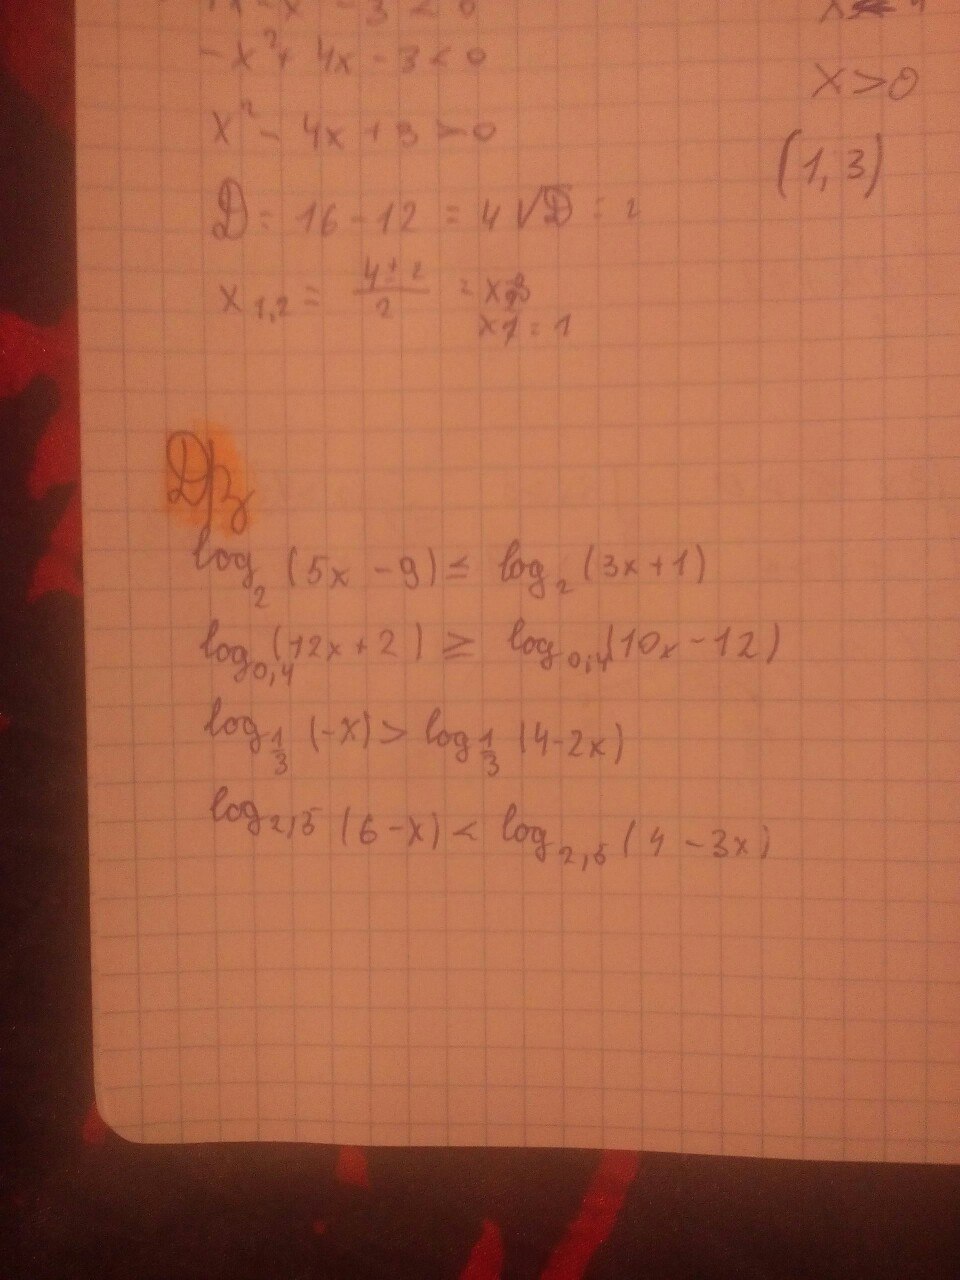 -x² + 4x - 3 < 0
x² - 4x + 3 > 0
D = 16 - 12 = 4 √D = 2
x₁,₂ = (4 ± 2)/2 =
x1 = 1
x > 0
(1, 3)
Д/з
log₂ (5x - 9) ≤ log₂ (3x + 1)
log₀,₄ (12x + 2) ≥ log₀,₄ (10x - 12)
log_1/3 (-x) > log_1/3 (4 - 2x)
log₂,₅ (6 - x) < log₂,₅ (4 - 3x)